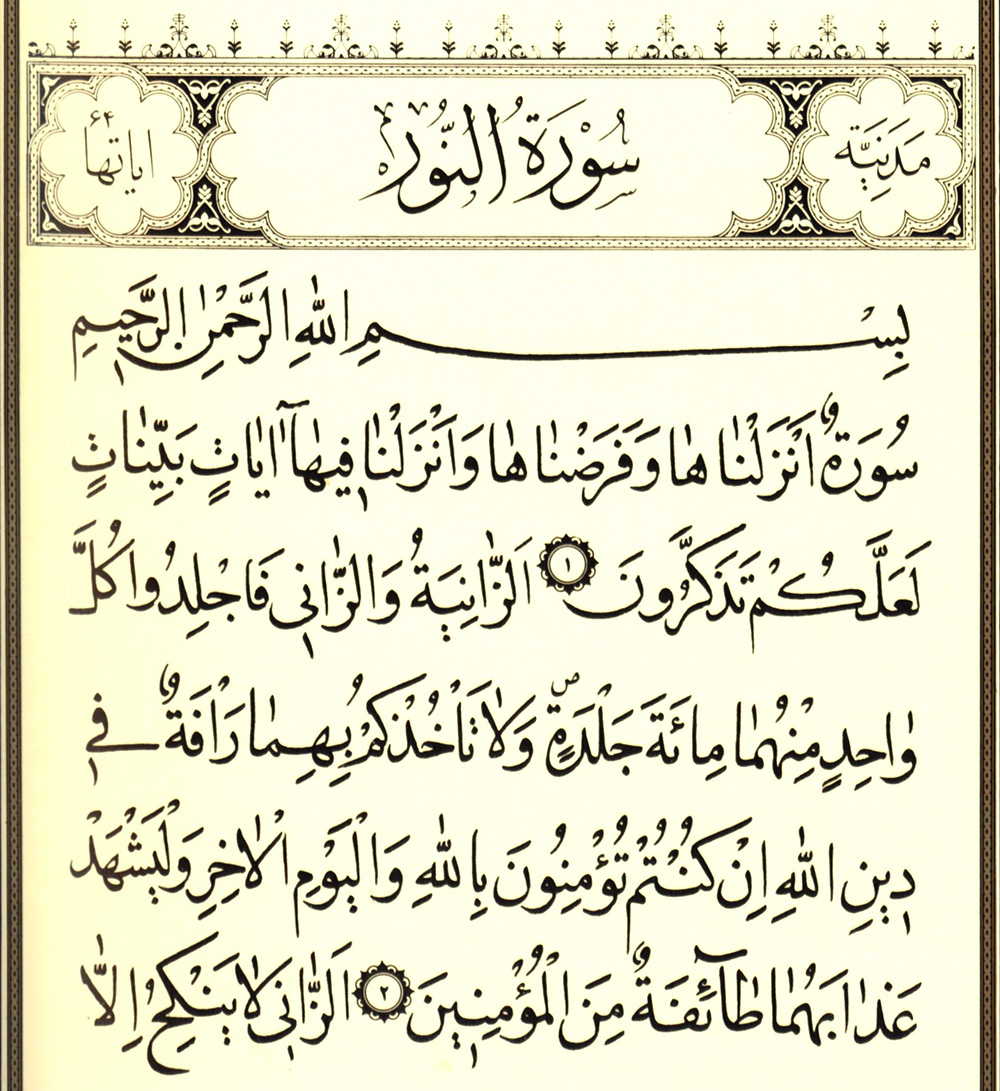 مَدَنِيَّة
سُوْرَةُ النُّوْرِ
اياتها ۶۴
بِسْمِ اللّٰهِ الرَّحْمٰنِ الرَّحٖيمِ
سُورَةٌ اَنْزَلْنَاهَا وَفَرَضْنَاهَا وَاَنْزَلْنَا فٖيهَٓا اٰيَاتٍ بَيِّنَاتٍ
لَعَلَّكُمْ تَذَكَّرُونَ ١ اَلزَّانِيَةُ وَالزَّانٖى فَاجْلِدُوا كُلَّ
وَاحِدٍ مِنْهُمَا مِائَةَ جَلْدَةٍۖ وَلَا تَاْخُذْكُمْ بِهِمَا رَاْفَةٌ فٖى
دٖينِ اللّٰهِ اِنْ كُنْتُمْ تُؤْمِنُونَ بِاللّٰهِ وَالْيَوْمِ الْاٰخِرِ وَلْيَشْهَدْ
عَذَابَهُمَا طَٓائِفَةٌ مِنَ الْمُؤْمِنٖينَ ٢ اَلزَّانٖى لَا يَنْكِحُ اِلَّا